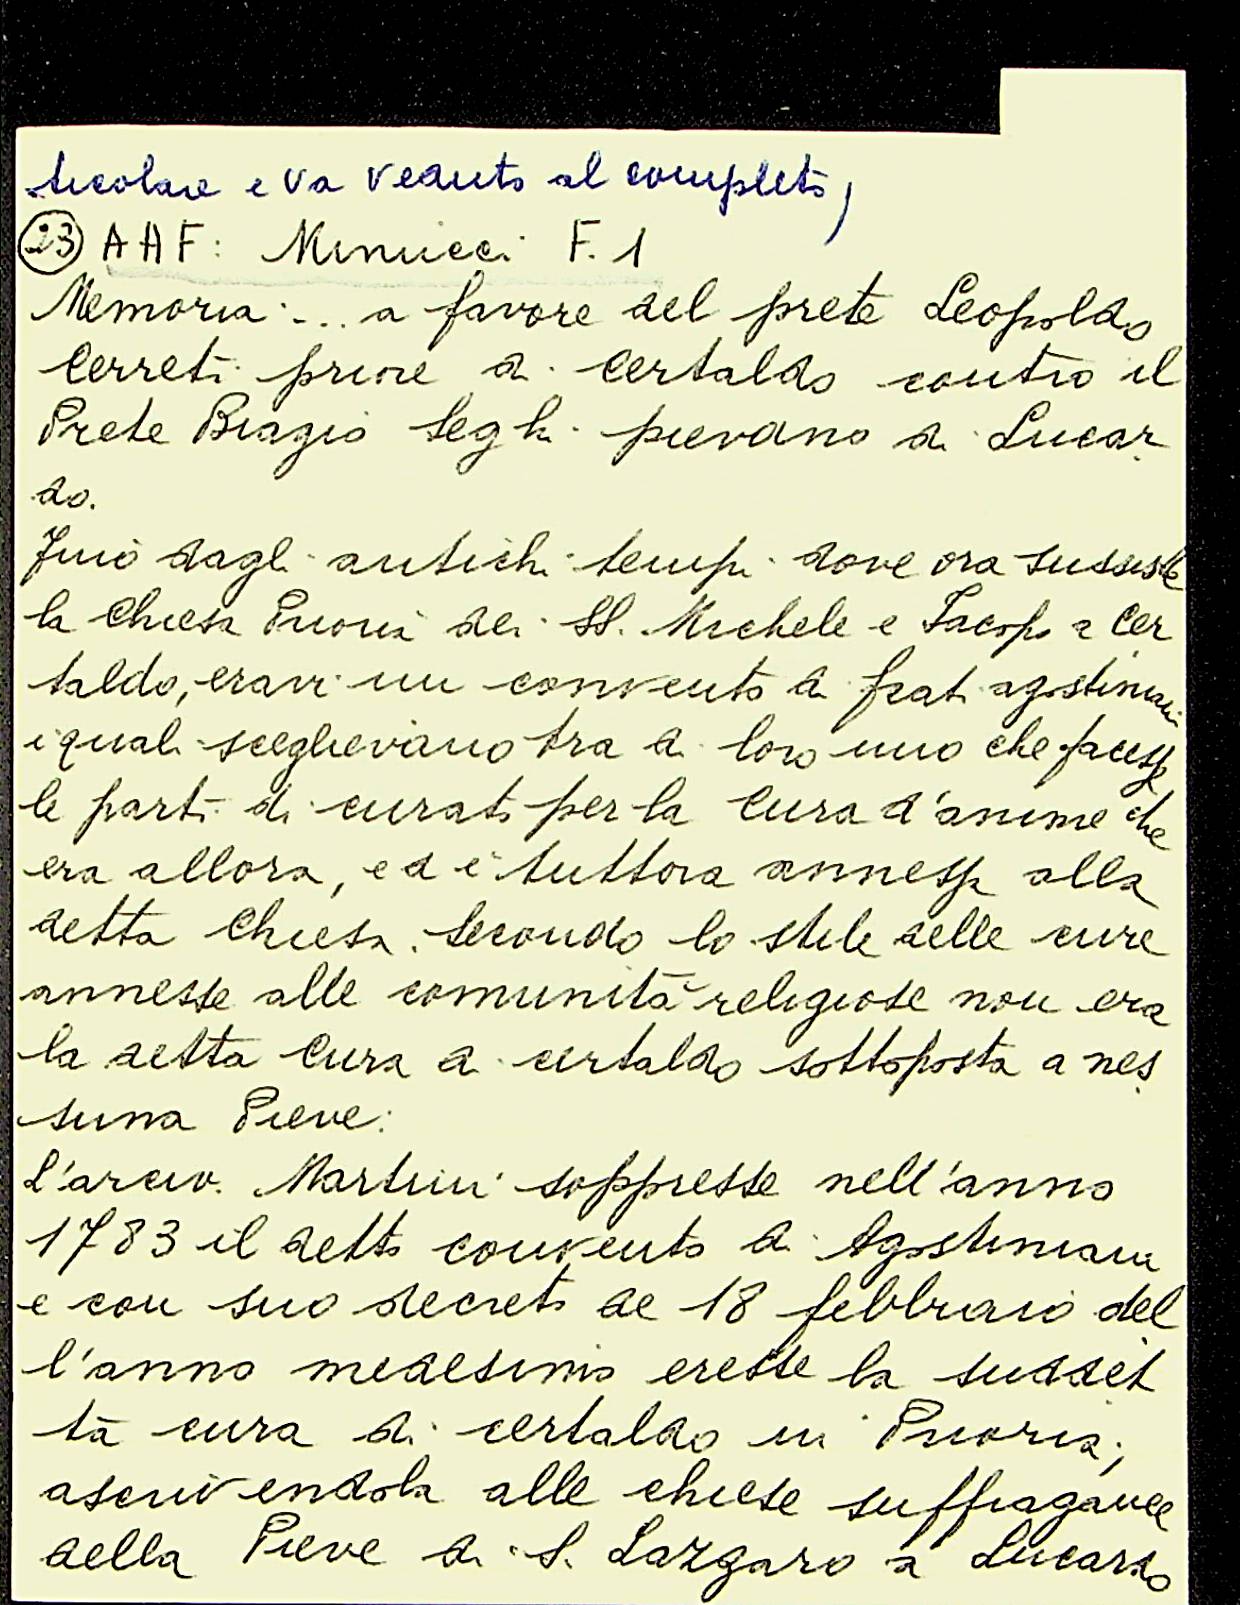 ticolare e va veduto al completo)
23 AAF: Minucci F. 1
Memoria ... a favore del prete Leopoldo
Cerreti priore di Certaldo contro il
Prete Biagio Seghi pievano di Lucar
do.
Fino dagli antichi tempi dove ora sussiste
la Chiesa Prioria dei SS. Michele e Jacopo a Cer
taldo, eravi un convento di frati agostiniani
i quali sceglievano tra di loro uno che facesse
le parti di curato per la Cura d'anime che
era allora, ed è tuttora annessa alla
detta Chiesa. Secondo lo stile delle cure
annesse alle comunità religiose non era
la detta Cura di Certaldo sottoposta a nes
suna Pieve:
L'arciv. Martini soppresse nell'anno
1783 il detto convento di Agostiniani
e con suo decreto de 18 febbraio del
l'anno medesimo eresse la suddet
ta cura di Certaldo in Prioria;
ascrivendola alle chiese suffraganee
della Pieve di S. Lazzaro a Lucardo